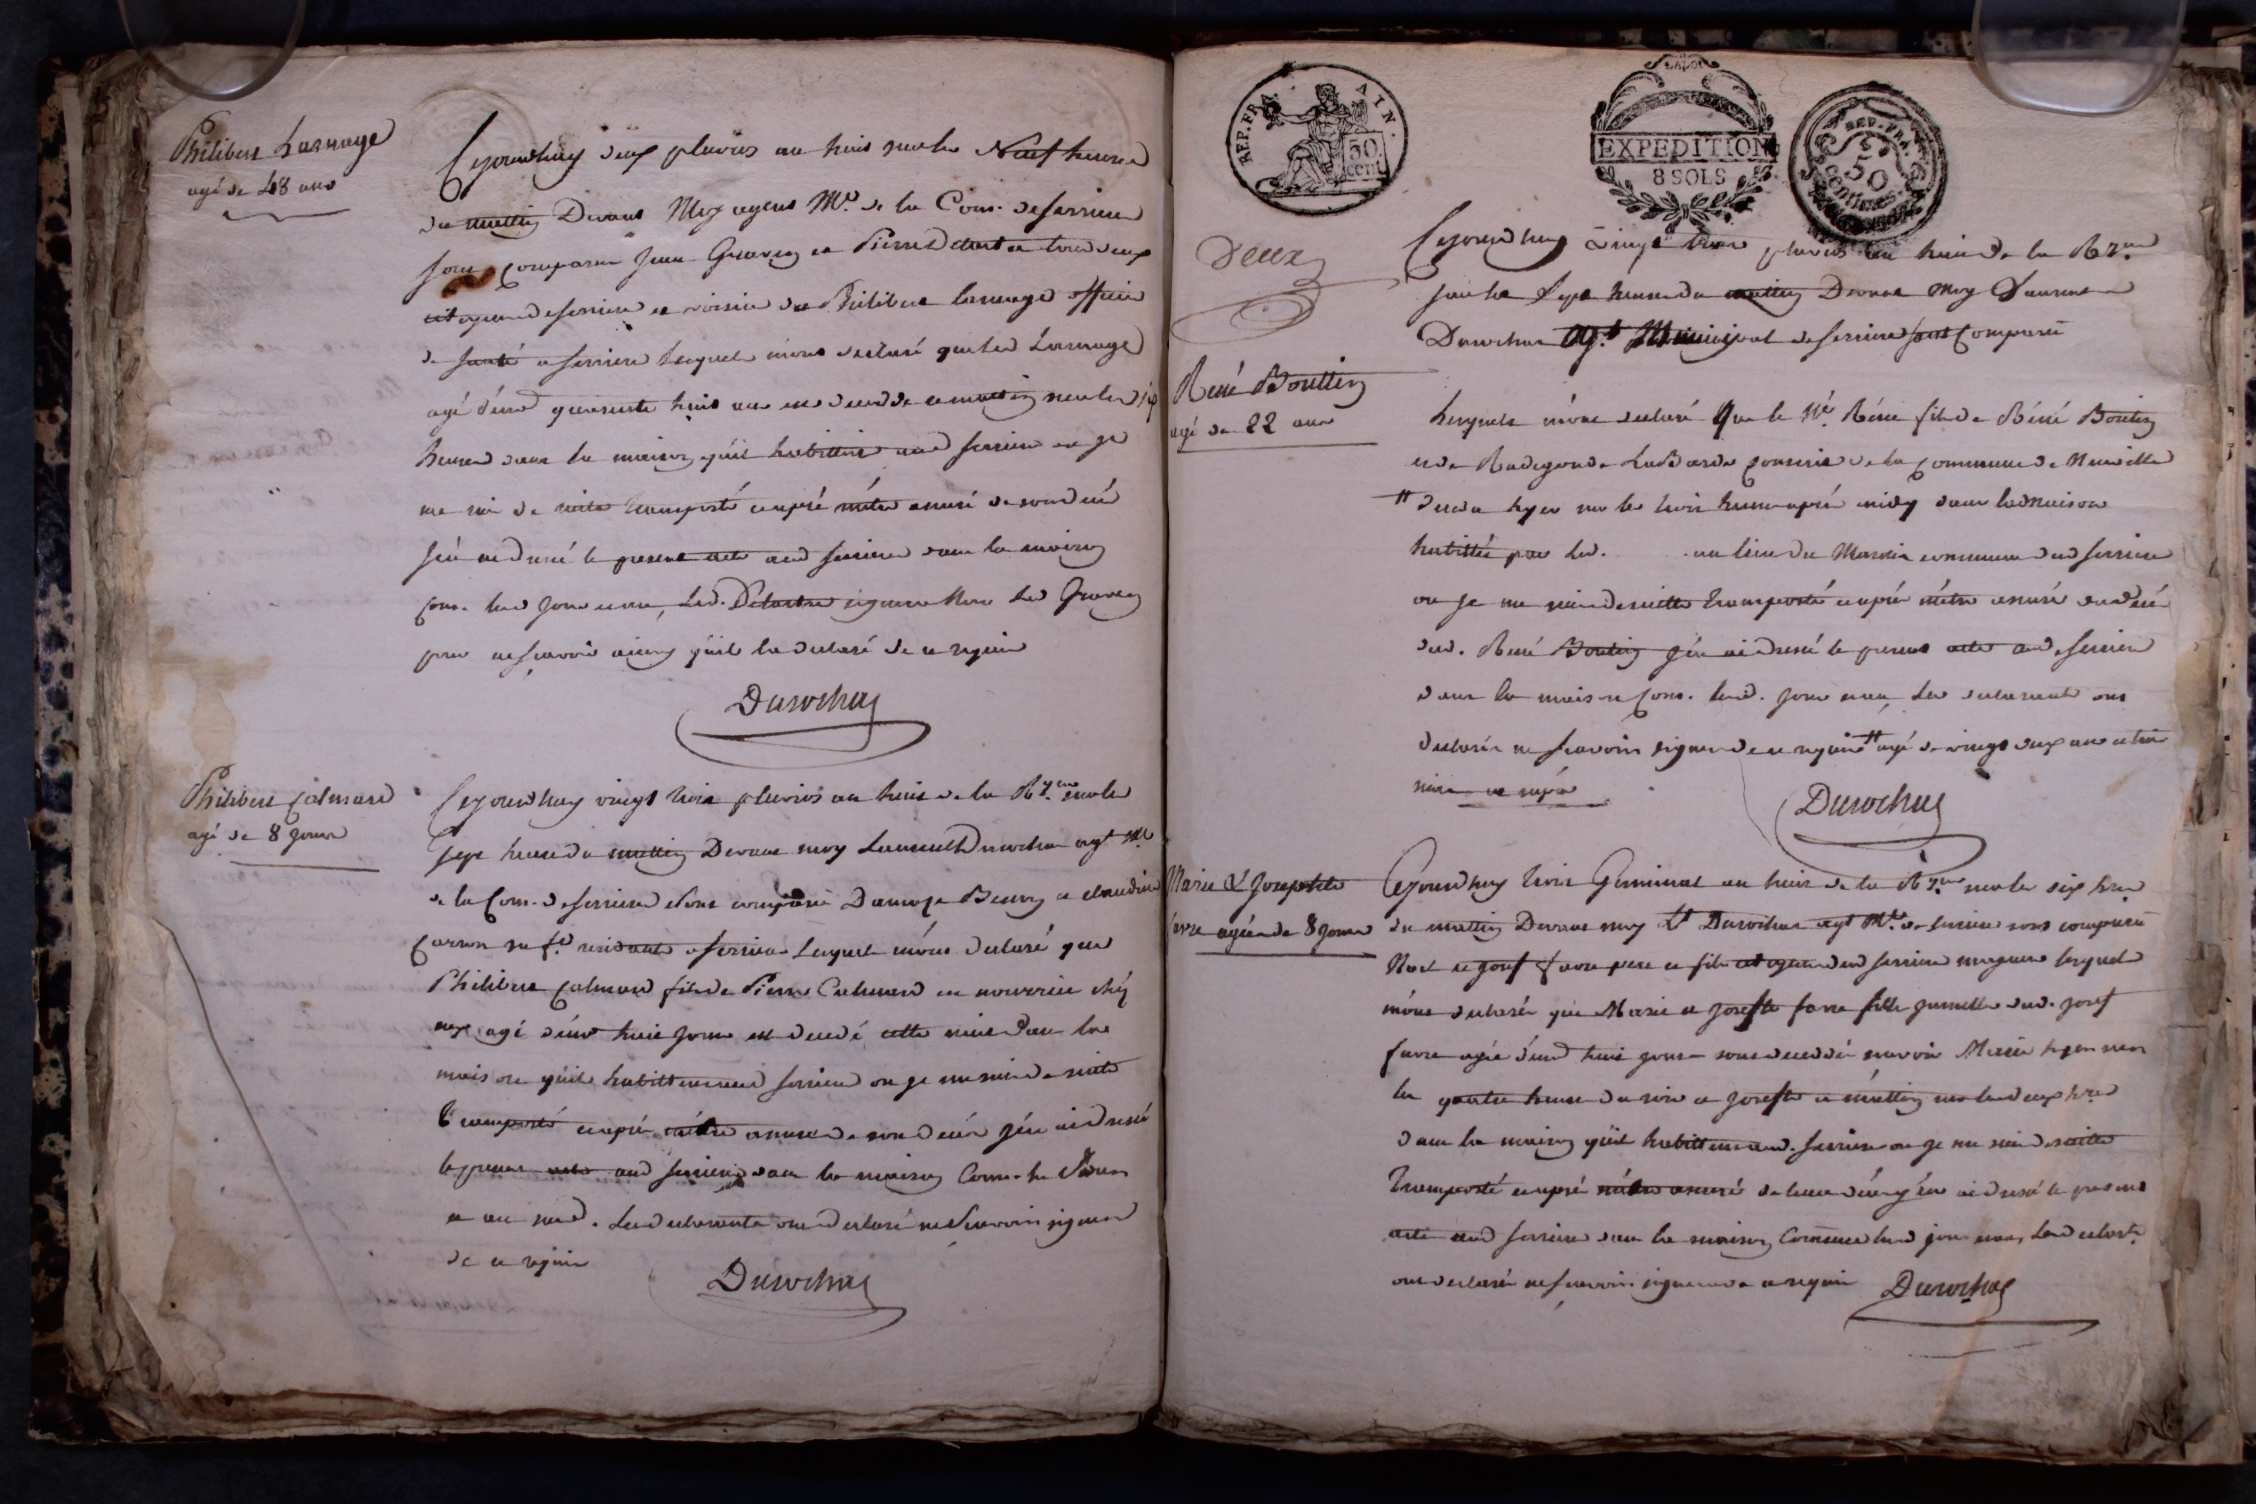 Philibert Larnage
agé de 48 ans
Cejourdhuy deux pluvios an huit sur les Neuf heures
du mattin Devant Moy agent Mal de la Com. de serriere
sont comparu Jean Gravery et Pierre tous deux
citoyens de serriere et voisin de Philibert Larnage officier
de santé a serriere lesquels m'ont declaré que led Larnage
agé d'env quarente huit ans est decedé ce mattin sur les six
heures dans la maison qu'il habittoit aud serriere ou je
me suis de suite transporté et apré m'etre assuré de son decé
j'en ai dressé le present acte aud serriere dans la maison
com. led jour et an, Led. Delastre signera Non led Gravery
pour ne scavoir ainsy qu'il la declaré de ce requis
Durochas
Philibert Calmard
agé de 8 jours
Cejourdhuy vingt trois pluvios an huit de la Rque sur les
sept heures du mattin Devant moy Laurent Durochas agt Mal
de la Com. de serriere sont comparu Beury et claudine
Carron sa fe residants a serriere Lesquels m'ont declaré que
Philibert Calmard fils de Pierre Calmard en nourrice chez
eux agé d'env huit jours est decedé cette nuit dans la
maison qu'ils habittent aud serriere ou je me suis de suite
transporté et apré m'etre assuré de son decé j'en ai dressé
le present acte aud serriere dans la maison Com. les jour
et an sud. Les declarants ont declaré ne scavoir signer
de ce requis
Durochas
REP. FRA. AIN.
50 cent
LA LOI
EXPEDITION
8 SOLS
REP. FRA.
50
centimes
Deux
Cejourdhuy vingt trois pluvios an huit de la Rque
sur les sept heures du mattin Devant moy Laurent
Durochas Agt Municipal de serriere sont Comparu
René Bouttin
agé de 22 ans
lesquels m'ont declaré que le Né René fils de René Bouttin
et de Radegonde LaBarde conscrit de la commune de Neuville
decedé hyer sur les trois heures aprés midy dans la maison
habittée par led. au lieu du Martin commune dud serriere
ou je me suis de suitte transporté et aprés m'etre assuré du decé
dud. René Bouttin j'en ai dressé le present acte aud serriere
dans la maison Com. led. jour et an, Les declarants ont
declarés ne scavoir signer de ce requis agé de vingt deux ans
Durochas
Marie & Josephte
favre agées de 8 jours
Cejourdhuy trois Germinal an huit de la Rque sur les six hres
du mattin Devant moy Lt Durochas agt Mal de serriere sont comparu
Noel et Josef favre pere et fils citoyens dud serriere lesquels
m'ont declarés que Marie et Josefte favre filles jumelles dud. Josef
favre agées d'env huit jours sont decedées scavoir Marie hyer sur
les quatre heures du soir et Josefte ce mattin sur les deux hres
dans la maison qu'ils habittent aud. serriere ou je me suis de suitte
transporté et apré m'etre assuré de leur decé j'en ai dressé le present
acte aud serriere dans la maison Commune led jour et an, Les declarts
ont declarés ne scavoir signer de ce requis Durochas